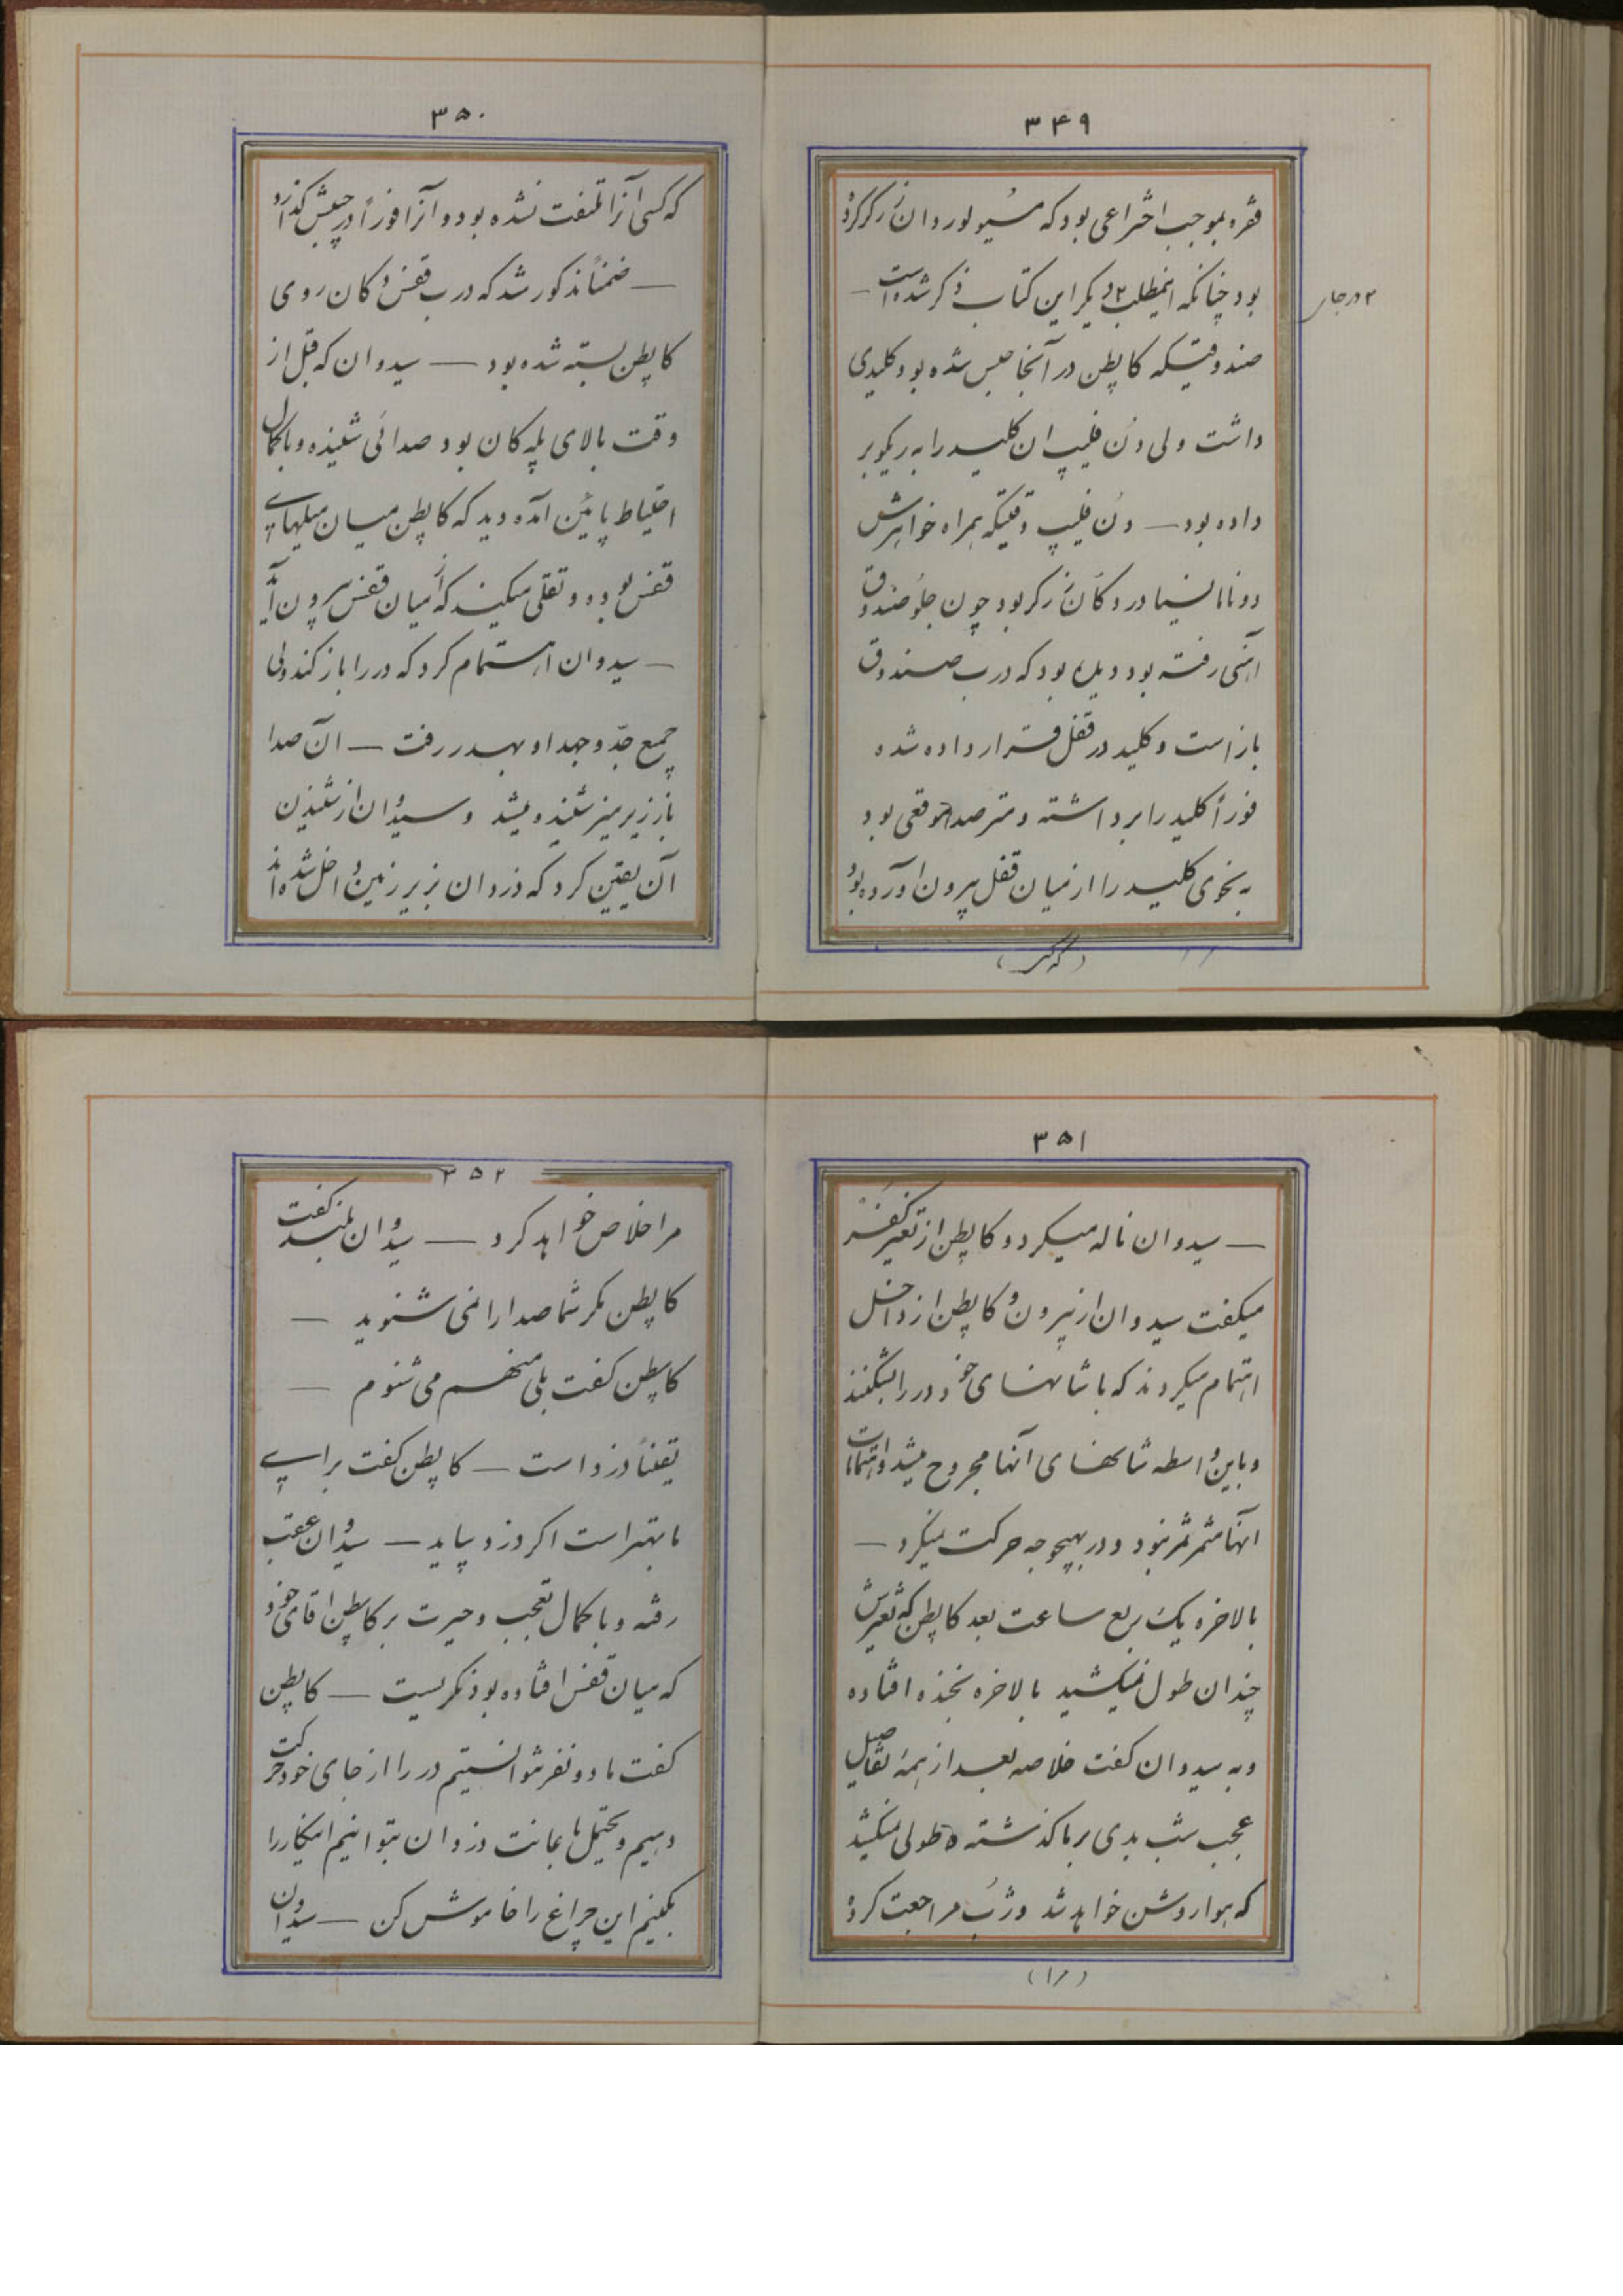 ۳۴۹
فقره بموجب اختراعی بود که مسیو لوردان زرگر کرده
بود چنانکه اینمطلب ۲ دیگر این کتاب ذکر شده است —
۲ در جای
صندوقیکه کاپطن در آنجا حبس شده بود کلیدی
داشت ولی دن فلیپ ان کلید را به ریکوبر
داده بود — دن فلیپ وقتیکه همراه خواهرش
دونا مانسیا در دکان زرگر بود چون جلو صندوق
اهنی رفته بود دیده بود که درب صندوق
باز است و کلید در قفل قرار داده شده
فوراً کلید را برداشته و مترصد موقعی بود
به نحوی کلید را از میان قفل بیرون اورده بود
(که کسی)
۳۵۰
که کسی آنرا ملتفت نشده بود و آنرا فوراً در جیبش گذارد
— ضمناً مذکور شد که درب قفس دکان روی
کاپطن بسته شده بود — سیدوان که قبل از
وقت بالای پله کان بود صدائی شنیده و با کمال
احتیاط پائین آمده دید که کاپطن میان میلهای
قفس بوده و تقلی میکند که از میان قفس بیرون آید
— سیدوان اهتمام کرد که در را باز کند ولی
جمیع جد و جهد او بهدر رفت — ان صدا
باز زیر میز شنیده میشد و سیدوان از شنیدن
آن یقین کرد که دزدان بزیر زمین داخل شده اند
۳۵۱
— سیدوان ناله میکرد و کاپطن از تغیر کفر
میگفت سیدوان از بیرون و کاپطن از داخل
اهتمام میکردند که با شانهای خود در را بشکنند
و باین واسطه شانهای آنها مجروح میشد و اهتمامات
انها مثمر ثمر نبود و در بهیچوجه حرکت نمیکرد —
بالاخره یک ربع ساعت بعد کاپطن که تغیرش
چندان طول نمیکشید بالاخره بخنده افتاده
و به سیدوان گفت خلاصه بعد از همه تفاصیل
عجب شب بدی بر ما گذشته طولی نمیکشد
که هوا روشن خواهد شد و ژب مراجعت کرده
(مرا)
۳۵۲
مرا خلاص خواهد کرد — سیدوان بلند گفت
کاپطن مگر شما صدا را نمی شنوید —
کاپطن گفت بلی منهم می شنوم —
یقیناً دزد است — کاپطن گفت برای
ما بهتر است اگر دزد بیاید — سیدوان عقب
رفته و با کمال تعجب و حیرت بر کاپطن اقای خود
که میان قفس افتاده بود نگریست — کاپطن
گفت ما دو نفر نتوانستیم در را از جای خود حرکت
دهیم و محتمل باعانت دزدان بتوانیم اینکار را
بکنیم این چراغ را خاموش کن — سیدوان